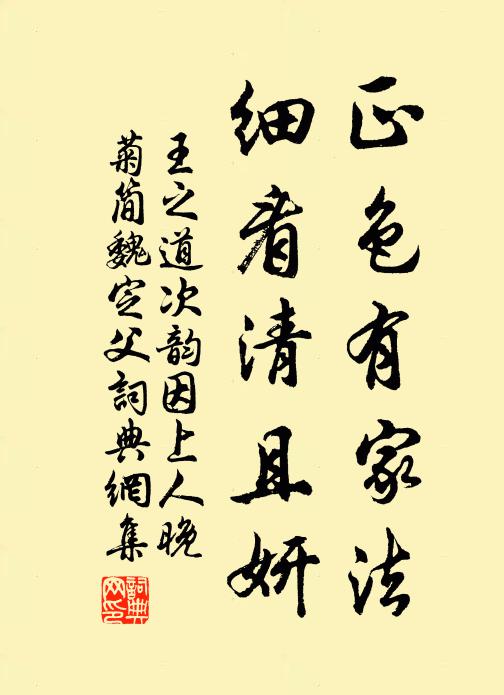 正色有家法
細看清且妍
王之道次韵因上人晚
菊簡魏定父詞典網集
詞典網印